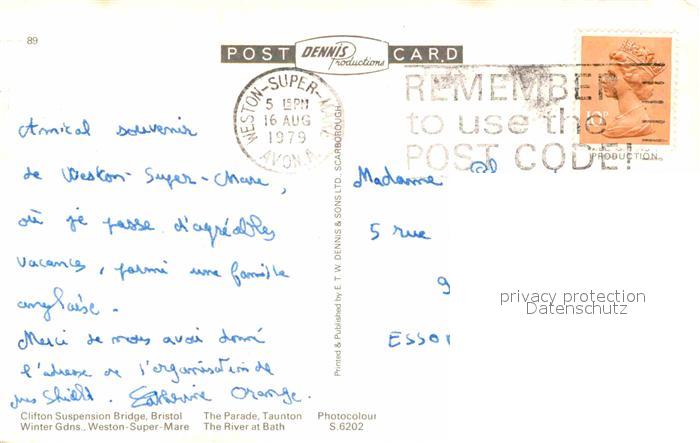 89
POST DENNIS Productions CARD
WESTON-SUPER-MARE
5 15PM
16 AUG
1979
AVON A
REMEMBER
to use the
POST CODE!
PRODUCTION.
Amical souvenir
de Weston-Super-Mare,
où je passe d'agréables
vacances, parmi une famille
anglaise.
Merci de nous avoir donné
l'adresse de l'organisation de
Shield. Catherine Orange.
Madame
5 rue
9
ESSOI
privacy protection
Datenschutz
Printed & Published by E. T. W. DENNIS & SONS LTD., SCARBOROUGH
Clifton Suspension Bridge, Bristol The Parade, Taunton Photocolour
Winter Gdns., Weston-Super-Mare The River at Bath S.6202